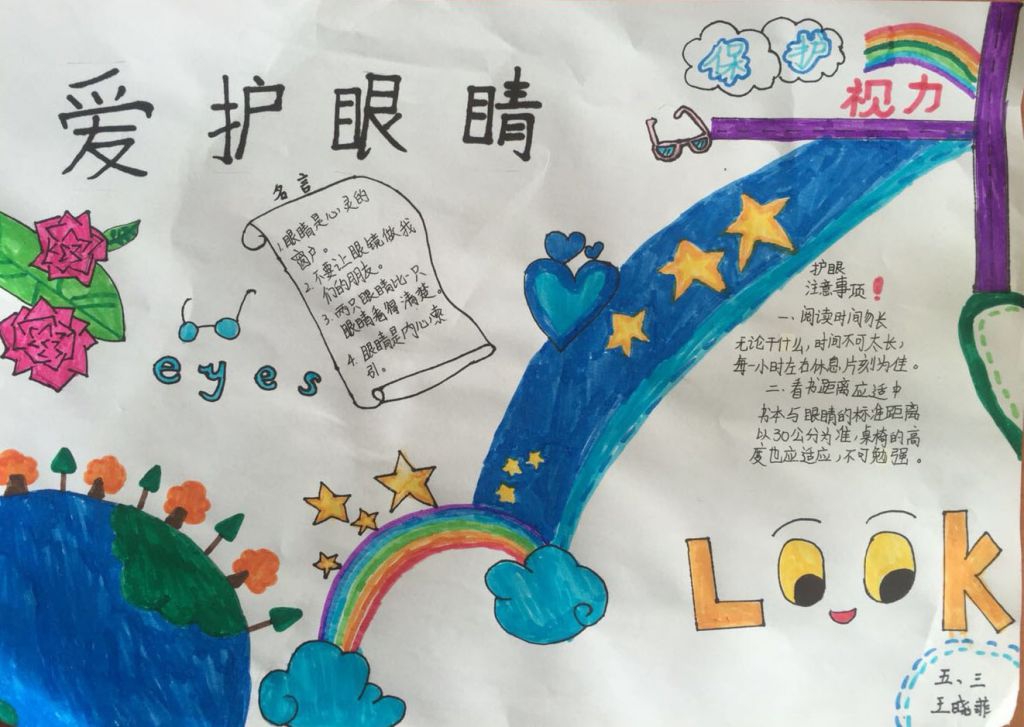 爱护眼睛
保护
视力
名言
1.眼睛是心灵的
窗户。
2.不要让眼镜做我
们的朋友。
3.两只眼睛比一只
眼睛看得清楚。
4.眼睛是内心索
引。
eyes
护眼
注意事项！
一、阅读时间勿长
无论干什么,时间不可太长,
每一小时左右休息片刻为佳。
二、看书距离应适中
书本与眼睛的标准距离
以30公分为准,桌椅的高
度也应适应,不可勉强。
Look
五、三
王晓菲